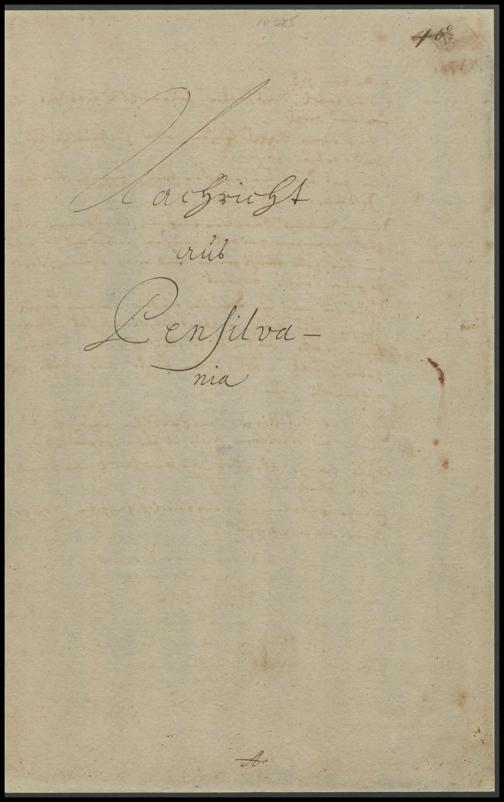 IV 285
Nachricht
aus
Pensilva-
nia
A